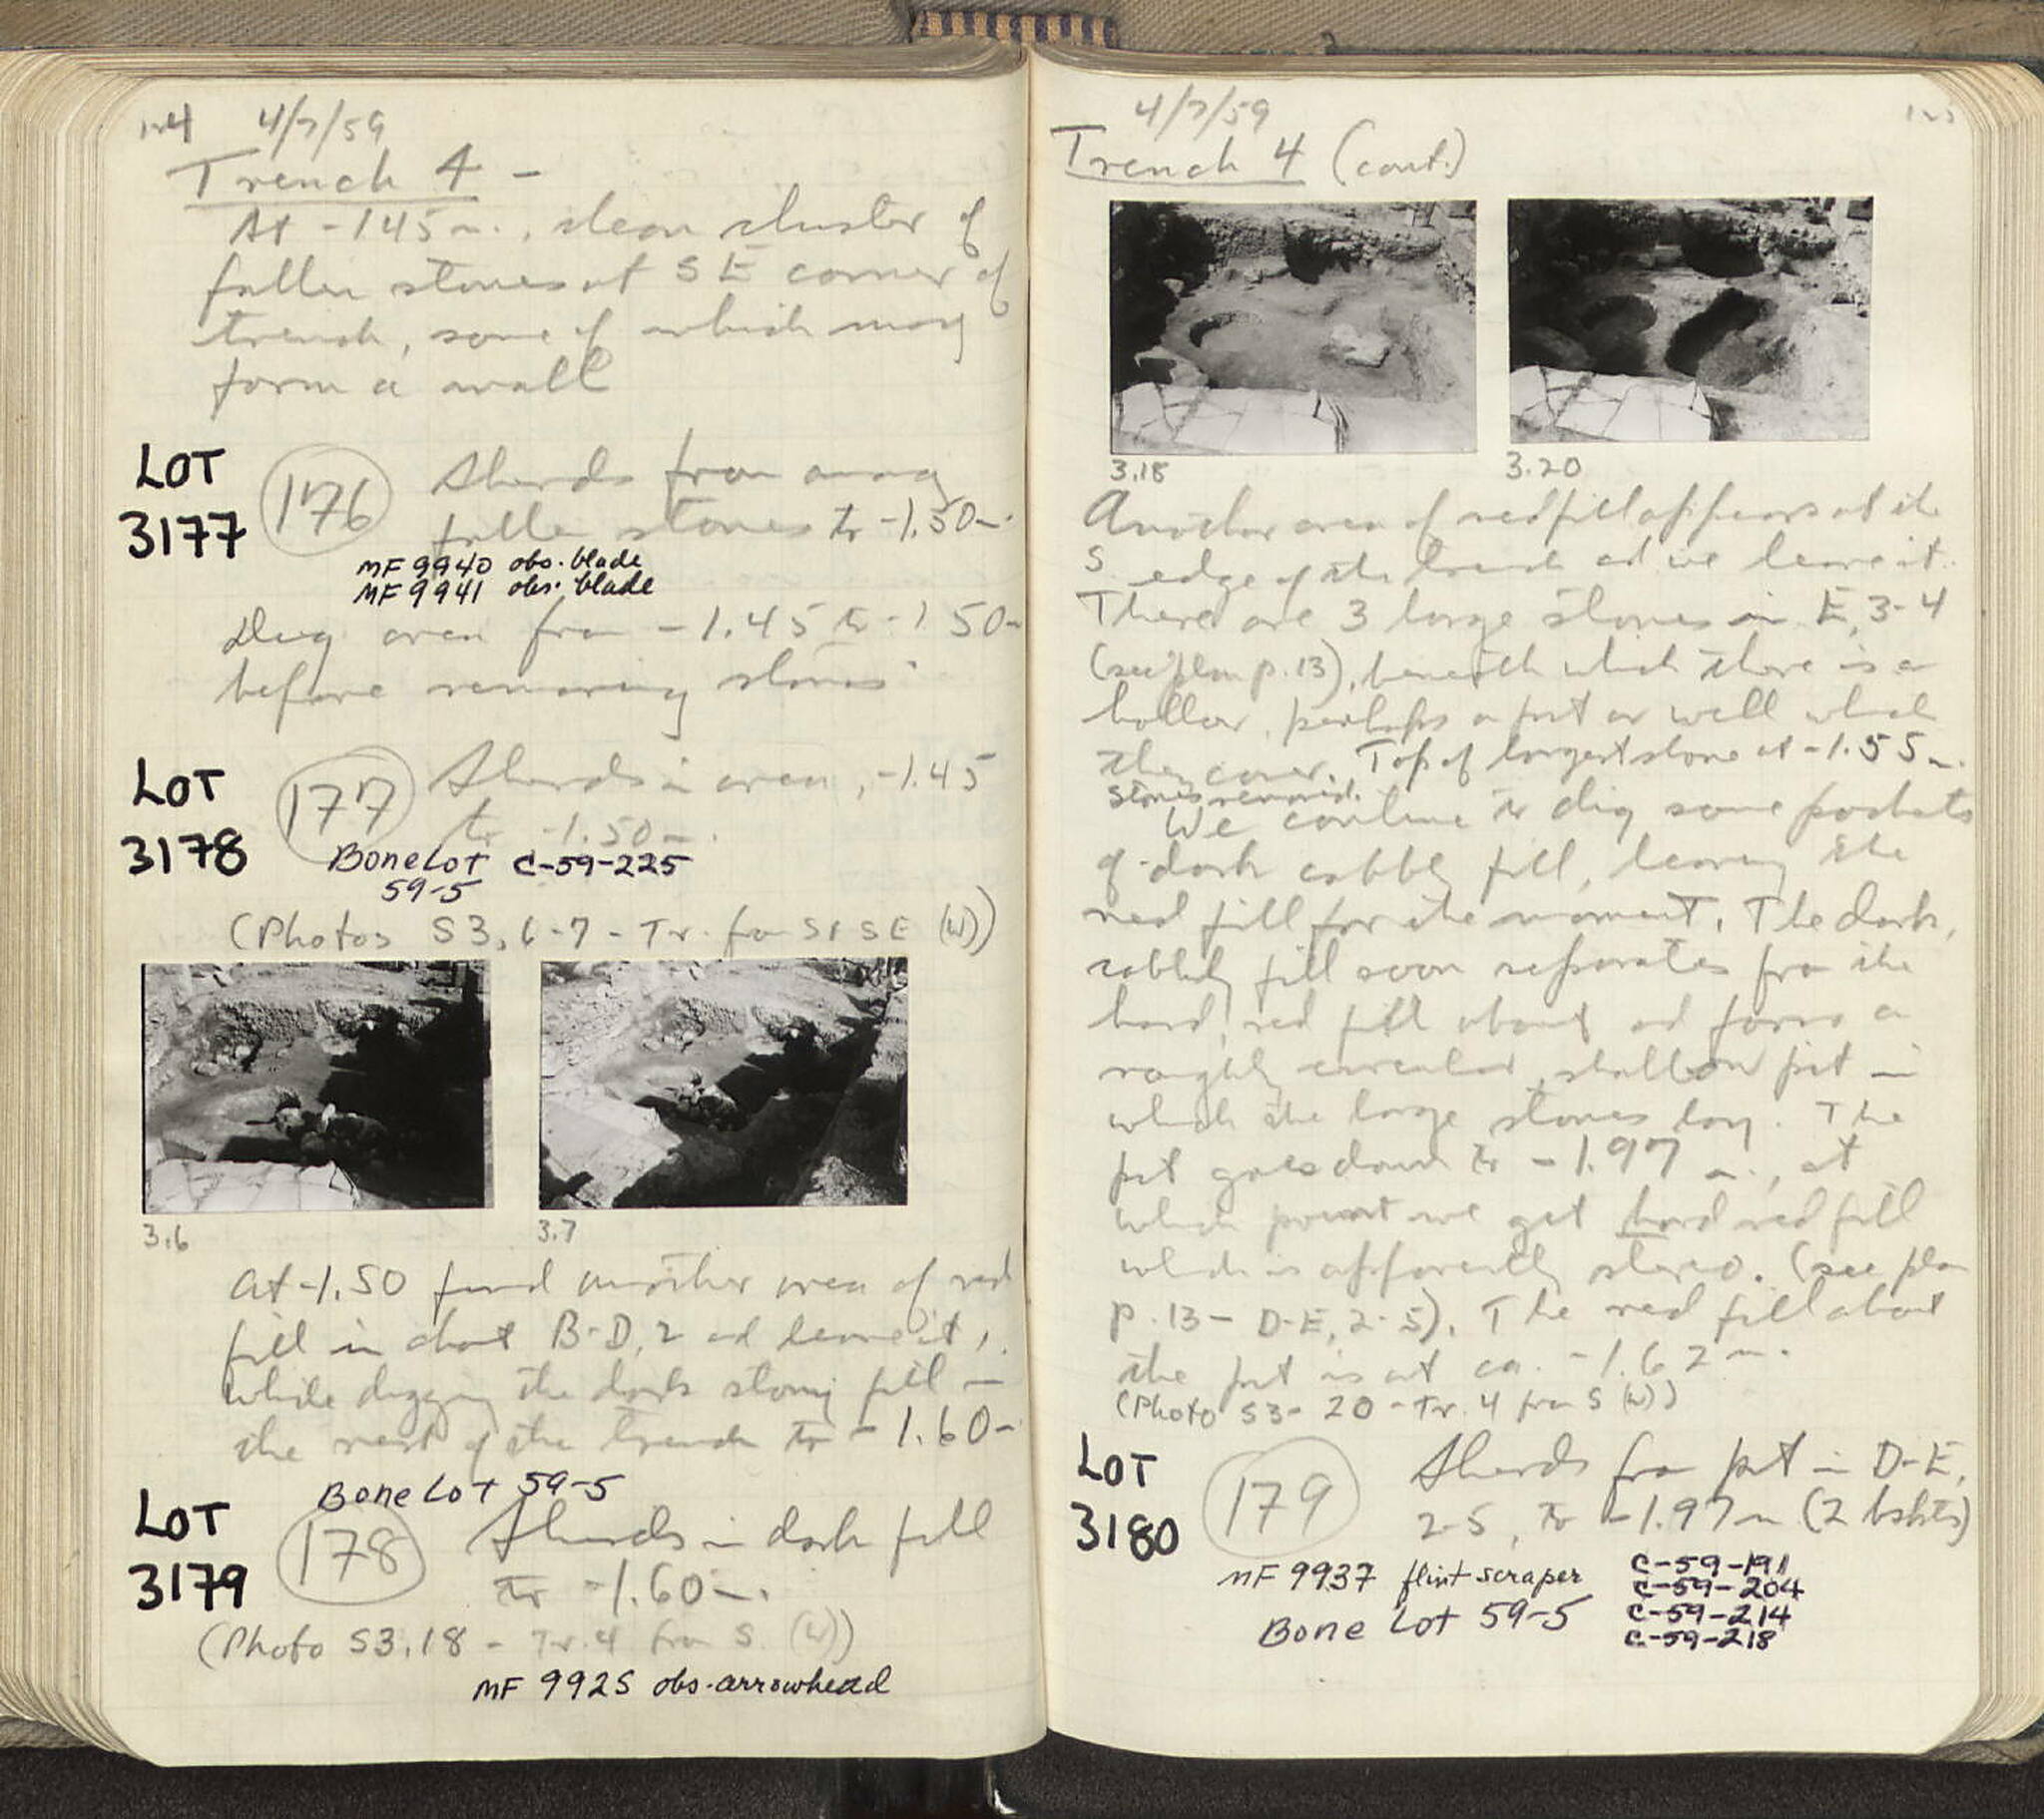 124 4/7/59
Trench 4 -
At -1.45 m., clean cluster of
fallen stones at SE corner of
trench, some of which may
form a wall
LOT
3177
176 Sherds from among
fallen stones to -1.50 m.
MF 9940 obs. blade
MF 9941 obs. blade
Dug area from -1.45 to -1.50 m
before removing stones
LOT
3178
177 Sherds in area, -1.45
to -1.50 m.
Bone Lot C-59-225
59-5
(Photos S3, 6-7 - Tr. from S & SE (W))
3.6 3.7
At -1.50 find another area of red
fill in about B-D, 2 and leave it,
while digging the dark stony fill in
the rest of the trench to -1.60 m
Bone Lot 59-5
LOT
3179
178 Sherds in dark fill
to -1.60 m.
(Photo S3, 18 - Tr. 4 from S. (W))
MF 9925 obs. arrowhead
4/7/59 125
Trench 4 (cont.)
3.18 3.20
Another area of red fill appears at the
S. edge of the trench and we leave it.
There are 3 large stones in E, 3-4
(see plan p. 13), beneath which there is a
hollow, perhaps a pit or well which
they cover. Top of largest stone at -1.55 m.
Stones removed.
We continue to dig some pockets
of dark cobbly fill, leaving the
red fill for the moment. The dark,
cobbly fill soon separates from the
hard, red fill about and forms a
roughly circular, shallow pit in
which the large stones lay. The
pit goes down to -1.97 m., at
which point we get hard red fill
which is apparently stereo. (see plan
p. 13 - D-E, 2-5). The red fill about
the pit is at ca. -1.62 m.
(Photo S3-20 - Tr. 4 from S (W))
LOT
3180
179 Sherds from pit in D-E,
2-5, to -1.97 m (2 bskts)
MF 9937 flint scraper
Bone Lot 59-5
C-59-191
C-59-204
C-59-214
C-59-218